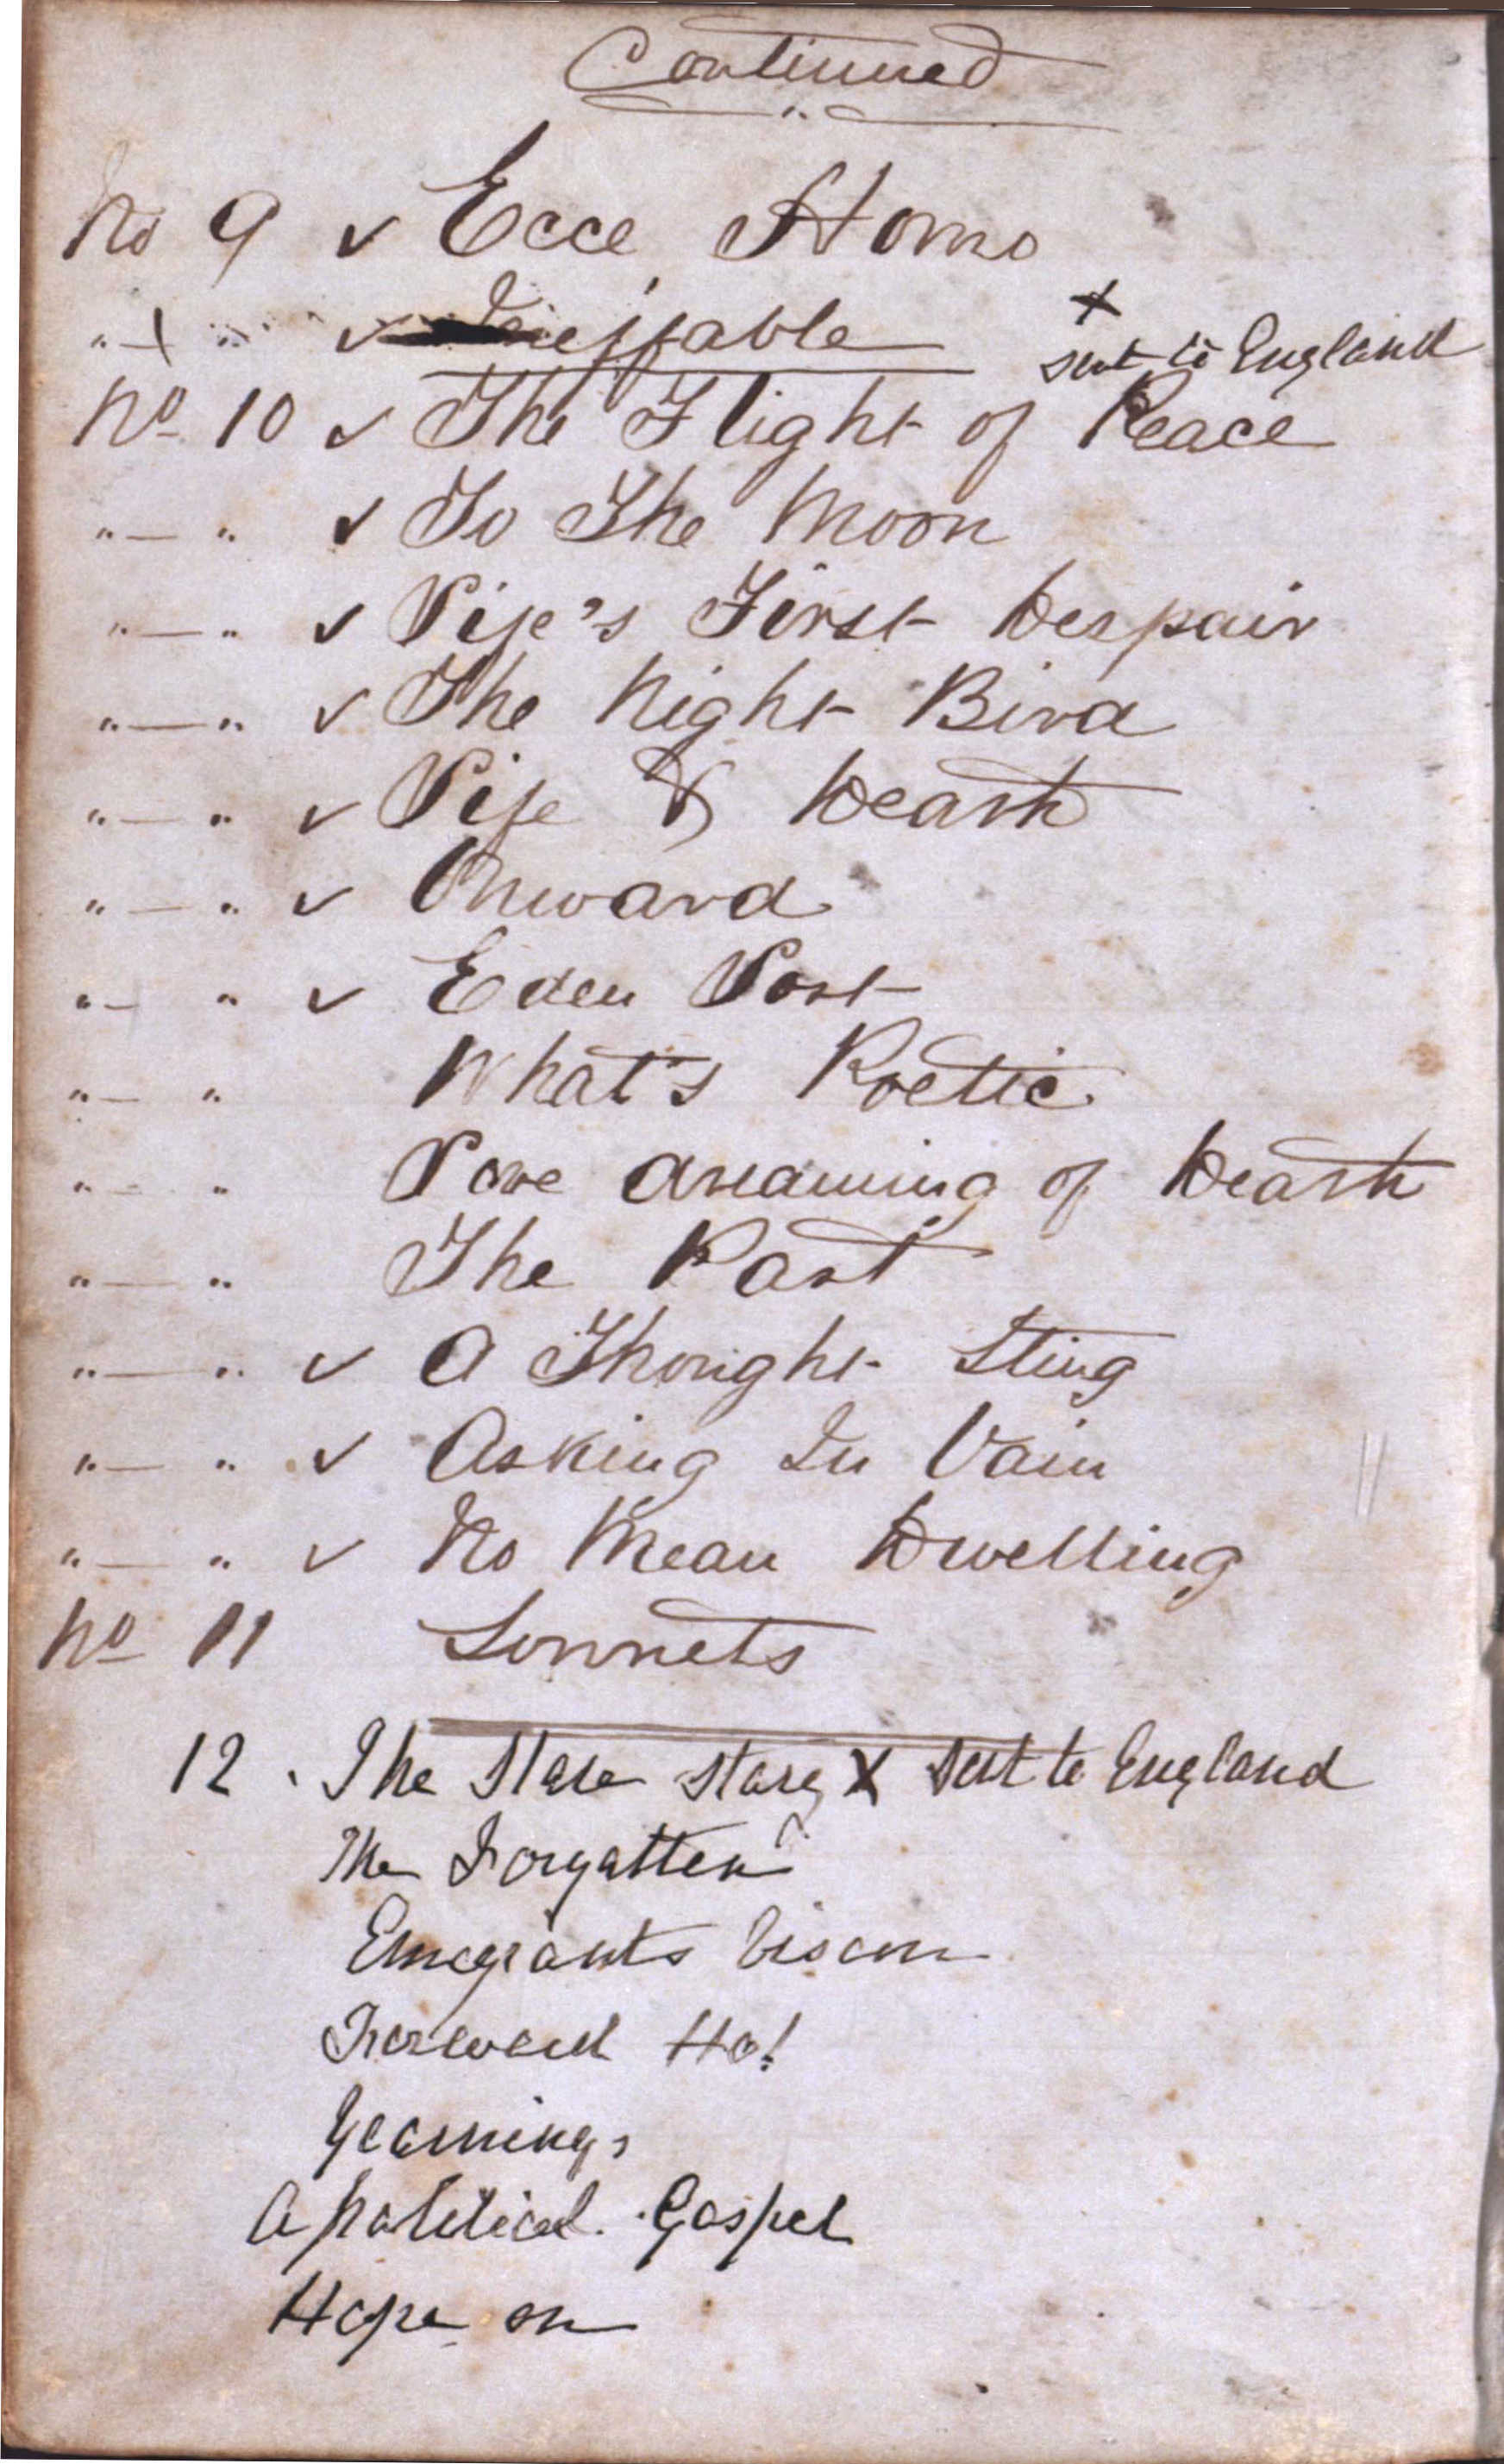 Continued
No 9 ✓ Ecce Homo
" — " ✓ Ineffable
x
sent to England
No 10 ✓ The Flight of Peace
" — " ✓ To The Moon
" — " ✓ Life's First Despair
" — " ✓ The Night Bird
" — " ✓ Life & Death
" — " ✓ Onward
" — " ✓ Eden Lost
" — " What's Poetic
" — " Love dreaming of Death
" — " The Past
" — " ✓ A Thought Sting
" — " ✓ Asking In Vain
" — " ✓ No Mean Dwelling
No 11 Sonnets
12 . The Stase x sent to England
The Forgotten
Emegrants Vision
Forward Ho!
Yearnings
A political Gospel
Hope on